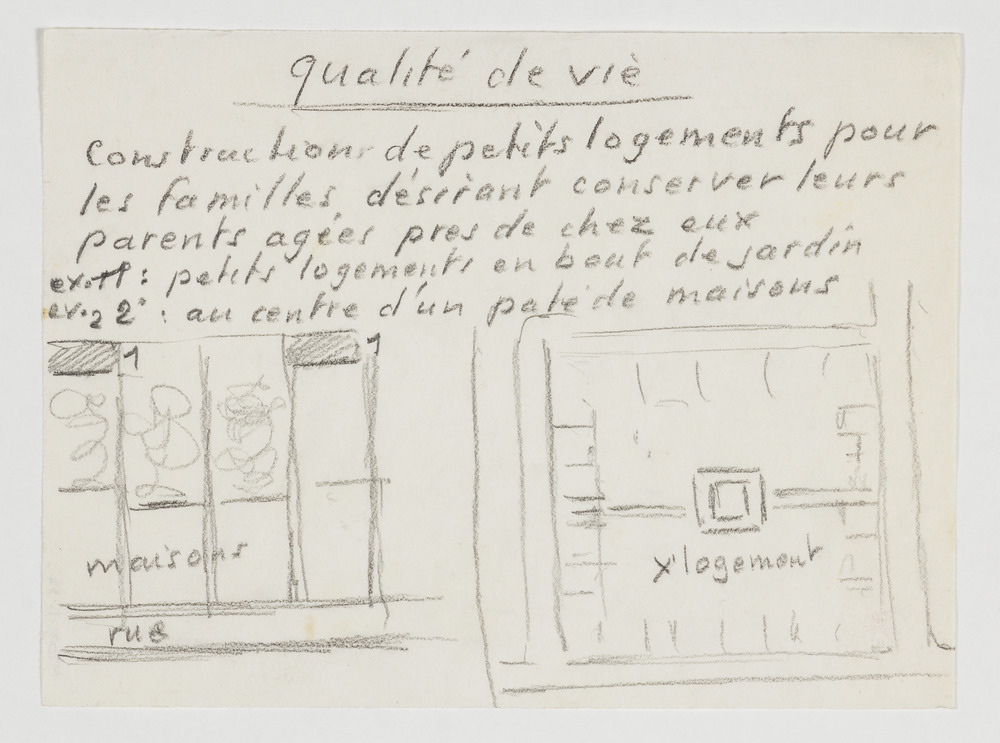 qualité de viè
Constructions de petits logements pour
les familles désirant conserver leurs
parents agées pres de chez eux
ex. 1: petits logements en bout de jardin
ex. 2 2° : au centre d'un paté de maisons
1
1
maisons
rue
x' logement